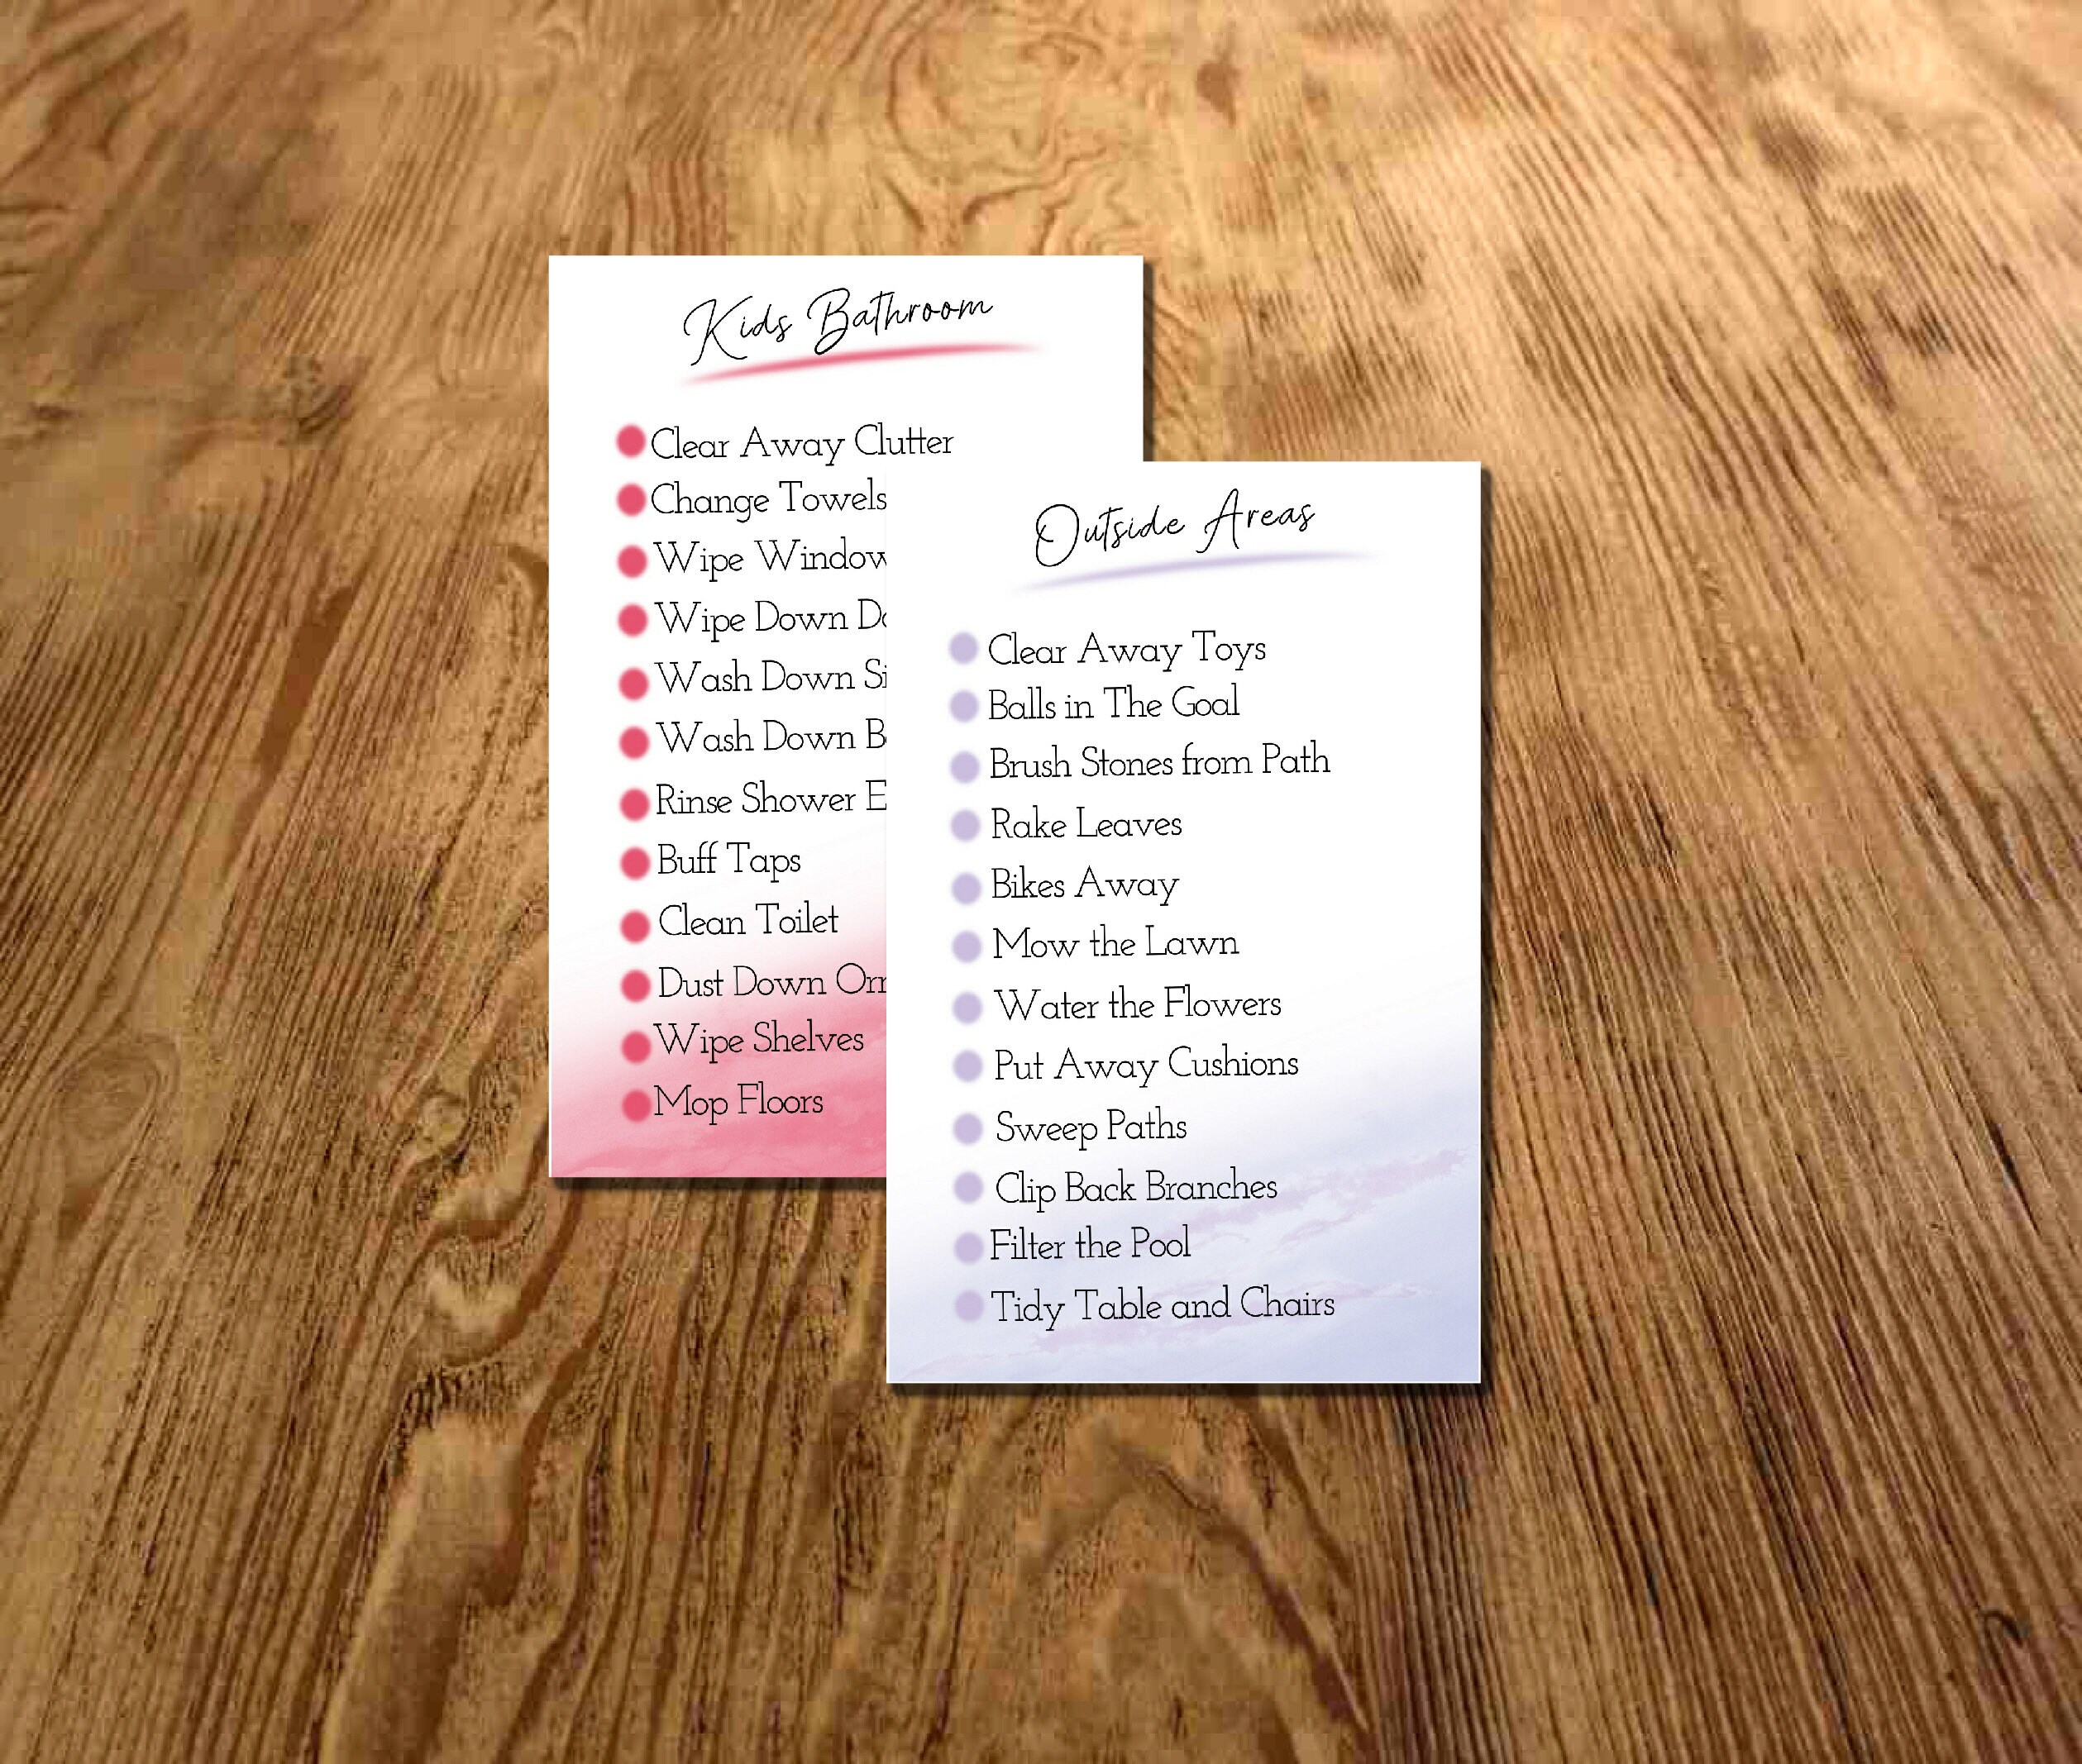 Kids Bathroom
Clear Away Clutter
Change Towels
Wipe
Wipe Down
Wash Down
Wash Down
Rinse Shower
Buff Taps
Clean Toilet
Dust Down
Wipe Shelves
Mop Floors
Outside Areas
Clear Away Toys
Balls in The Goal
Brush Stones from Path
Rake Leaves
Bikes Away
Mow the Lawn
Water the Flowers
Put Away Cushions
Sweep Paths
Clip Back Branches
Filter the Pool
Tidy Table and Chairs